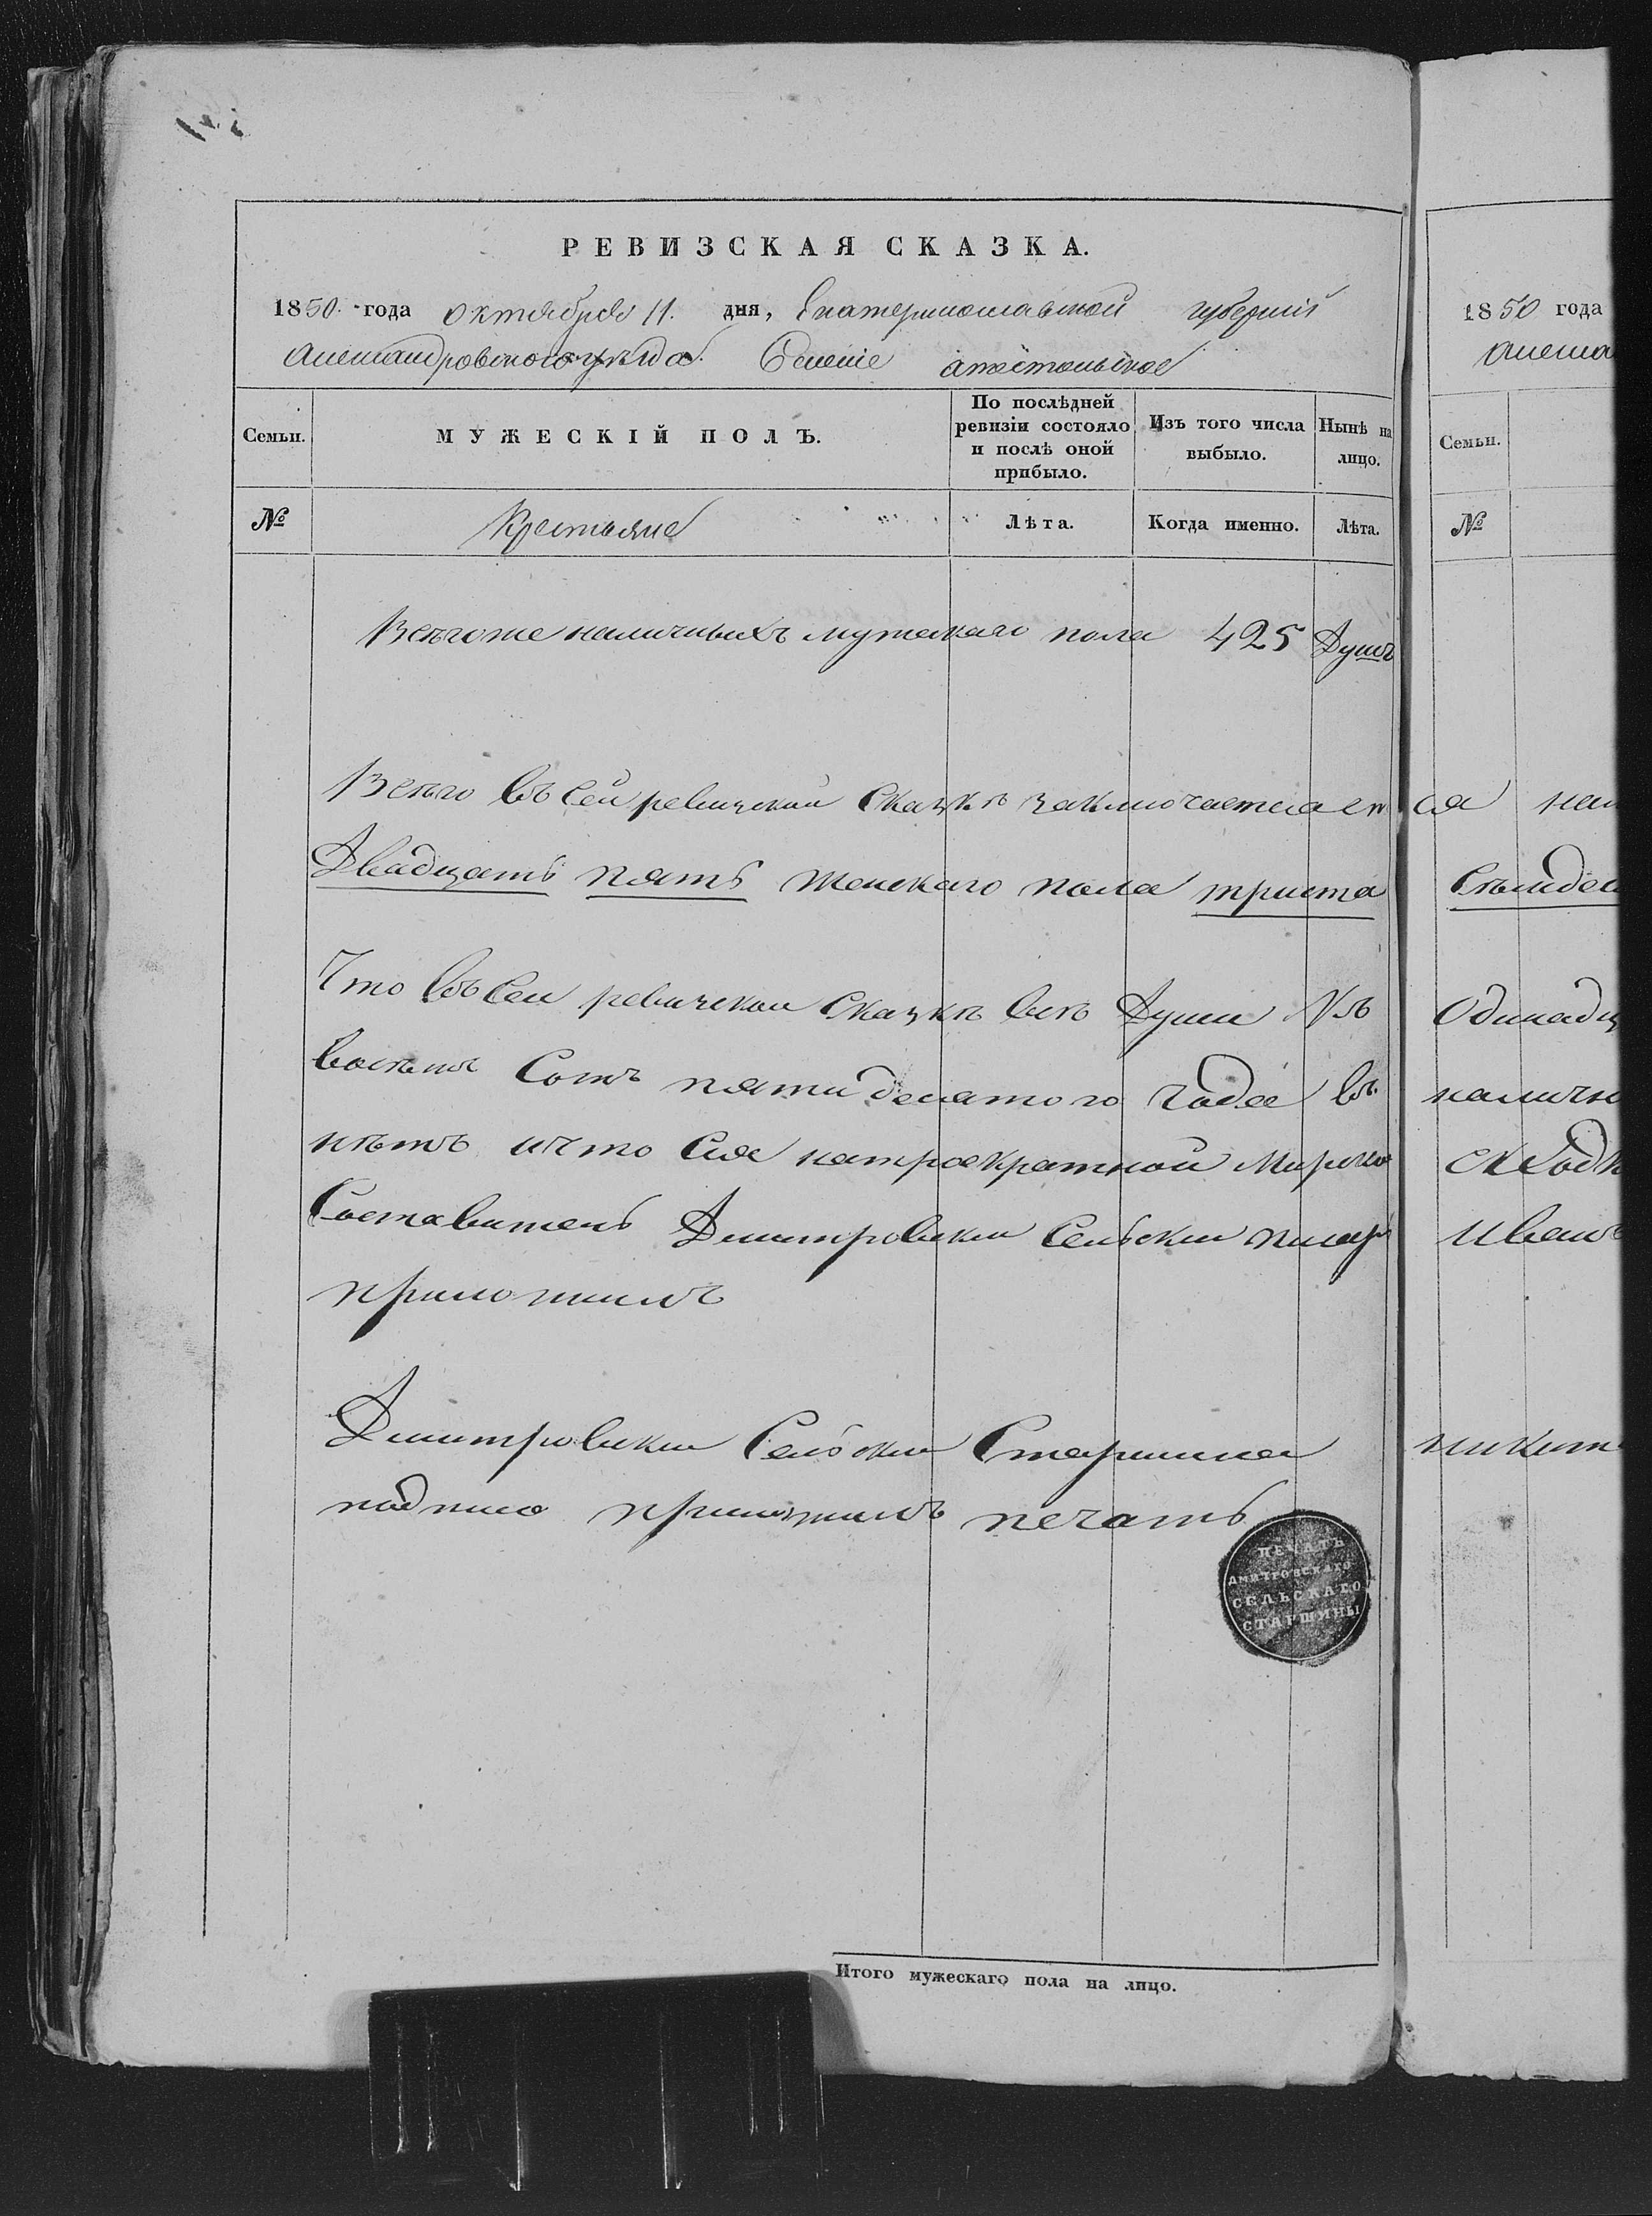 РЕВИЗСКАЯ СКАЗКА.
1850. года октября 11. дня, Екатеринославской губерніи
Александровского уѣзда. Селеніе
Семьи.
МУЖЕСКІЙ ПОЛЪ.
По послѣдней ревизіи состояло и послѣ оной прибыло.
Изъ того числа выбыло.
Нынѣ на лицо.
№
Крестьяне
Лѣта.
Когда именно.
Лѣта.
Всѣгоже наличныхъ мужскаго пола 425 Душъ
Всѣго въ сей ревизской Сказкѣ заключается
Двадцать пять женскаго пола триста
Что въ сей ревизской Сказкѣ всѣ Души Къ
восѣмъ Сотъ пятидесятого года въ
нѣтъ ичто сія натроекратной мирско
Составитель Дмитровски Сельски писарь
приложилъ
Дмитровски Сельски Старшина
подписо приложилъ печать
ПЕЧАТЬ
ДМИТРОВСКАГО
СЕЛЬСКАГО
СТАРШИНЫ
Итого мужескаго пола на лицо.
1850 года
Семьи.
№